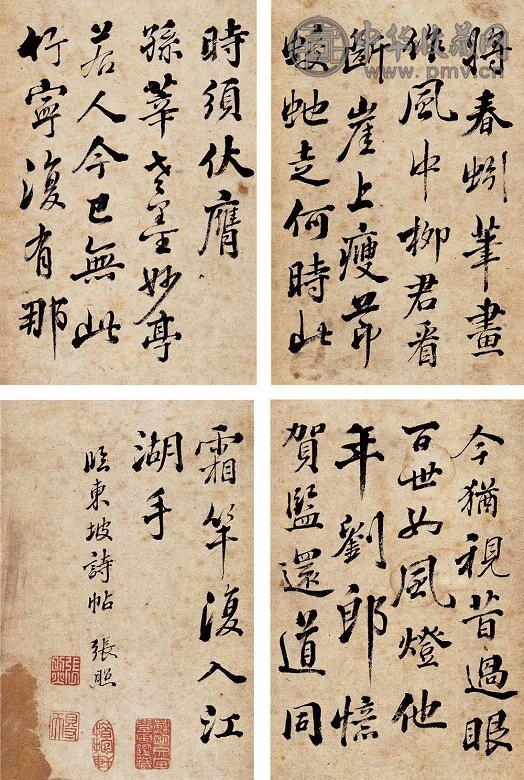 今猶視昔過眼
百世如風燈他
年劉郎憶
賀監還道同
時須伏膺
孫莘老墨妙亭
若人今已無此
竹寧復有那
將春蚓筆畫
作風中柳君看
斷崖上瘦節
蛟虵走何時此
霜竿復入江
湖手
臨東坡詩帖 張照
中华收藏网
www.pmv.cn